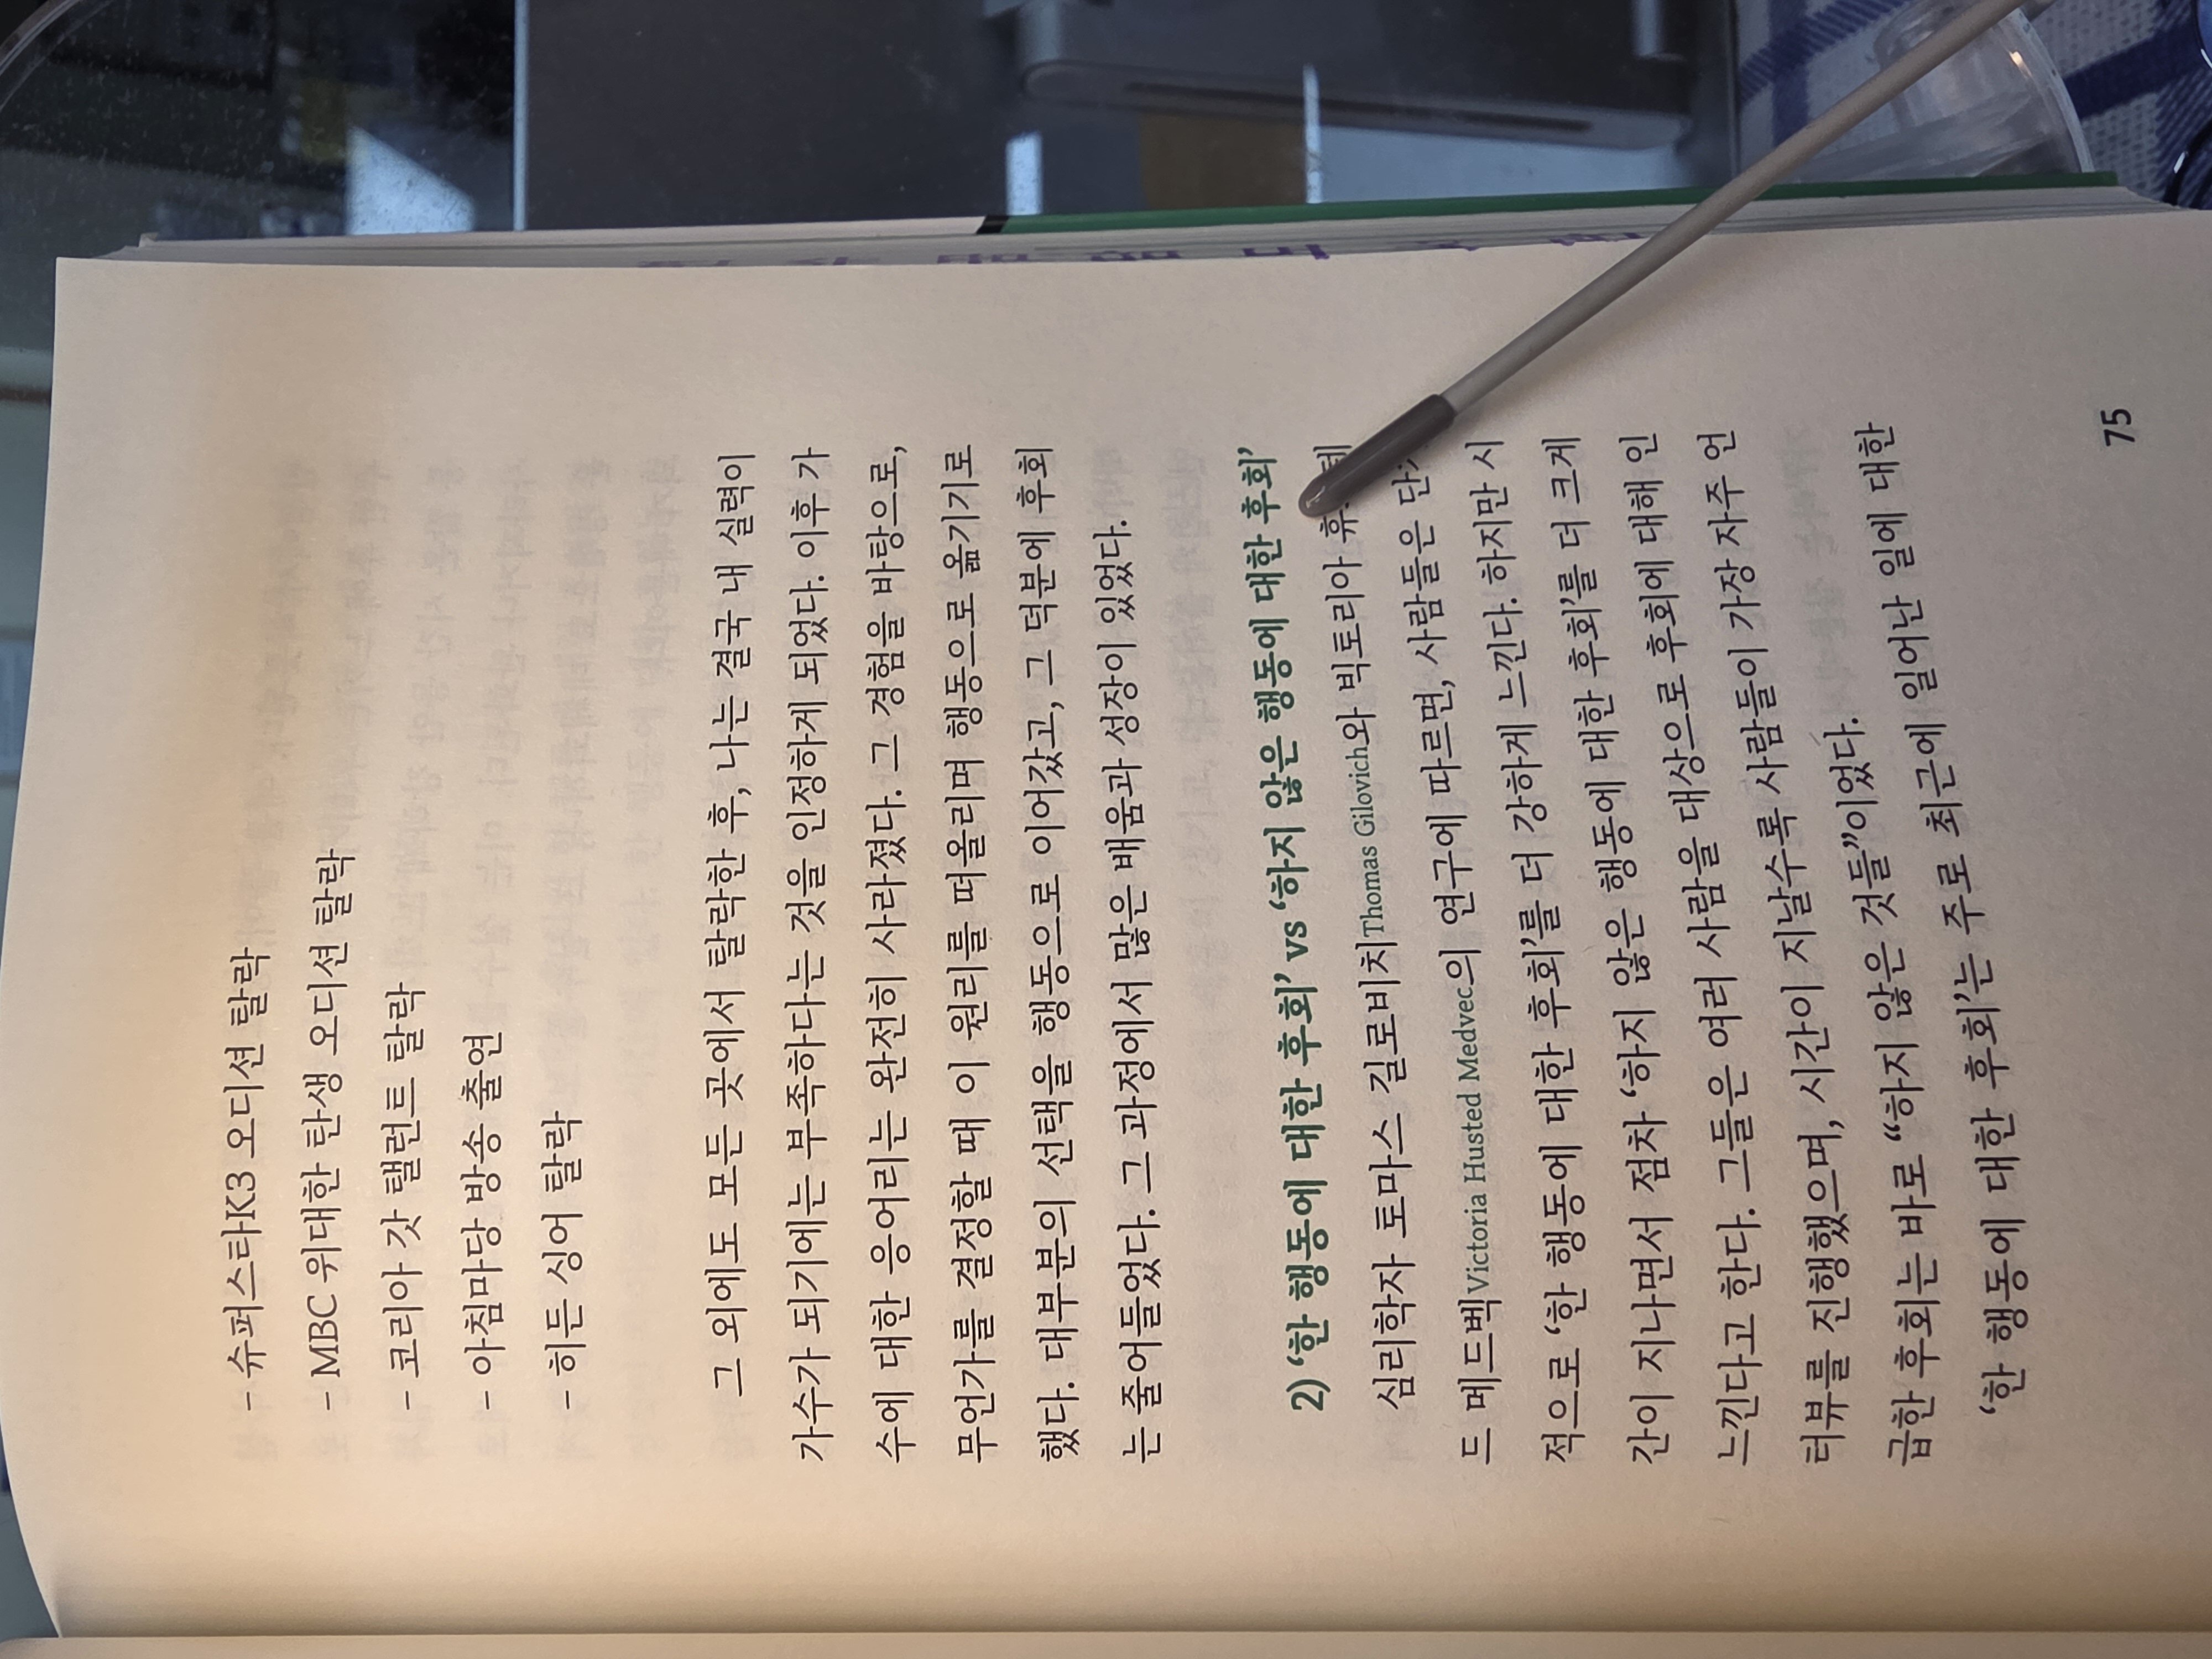 - 슈퍼스타K3 오디션 탈락
- MBC 위대한 탄생 오디션 탈락
- 코리아 갓 탤런트 탈락
- 아침마당 방송 출연
- 히든 싱어 탈락
그 외에도 모든 곳에서 탈락한 후, 나는 결국 내 실력이
가수가 되기에는 부족하다는 것을 인정하게 되었다. 이후 가
수에 대한 응어리는 완전히 사라졌다. 그 경험을 바탕으로,
무언가를 결정할 때 이 원리를 떠올리며 행동으로 옮기기로
했다. 대부분의 선택을 행동으로 이어갔고, 그 덕분에 후회
는 줄어들었다. 그 과정에서 많은 배움과 성장이 있었다.
2) ‘한 행동에 대한 후회’ vs ‘하지 않은 행동에 대한 후회’
심리학자 토마스 길로비치Thomas Gilovich와 빅토리아
드 메드벡Victoria Husted Medvec의 연구에 따르면, 사람들은
적으로 ‘한 행동에 대한 후회’를 더 강하게 느낀다. 하지만 시
간이 지나면서 점차 ‘하지 않은 행동에 대한 후회’를 더 크게
느낀다고 한다. 그들은 여러 사람을 대상으로 후회에 대해 인
터뷰를 진행했으며, 시간이 지날수록 사람들이 가장 자주 언
급한 후회는 바로 “하지 않은 것들”이었다.
‘한 행동에 대한 후회’는 주로 최근에 일어난 일에 대한
75